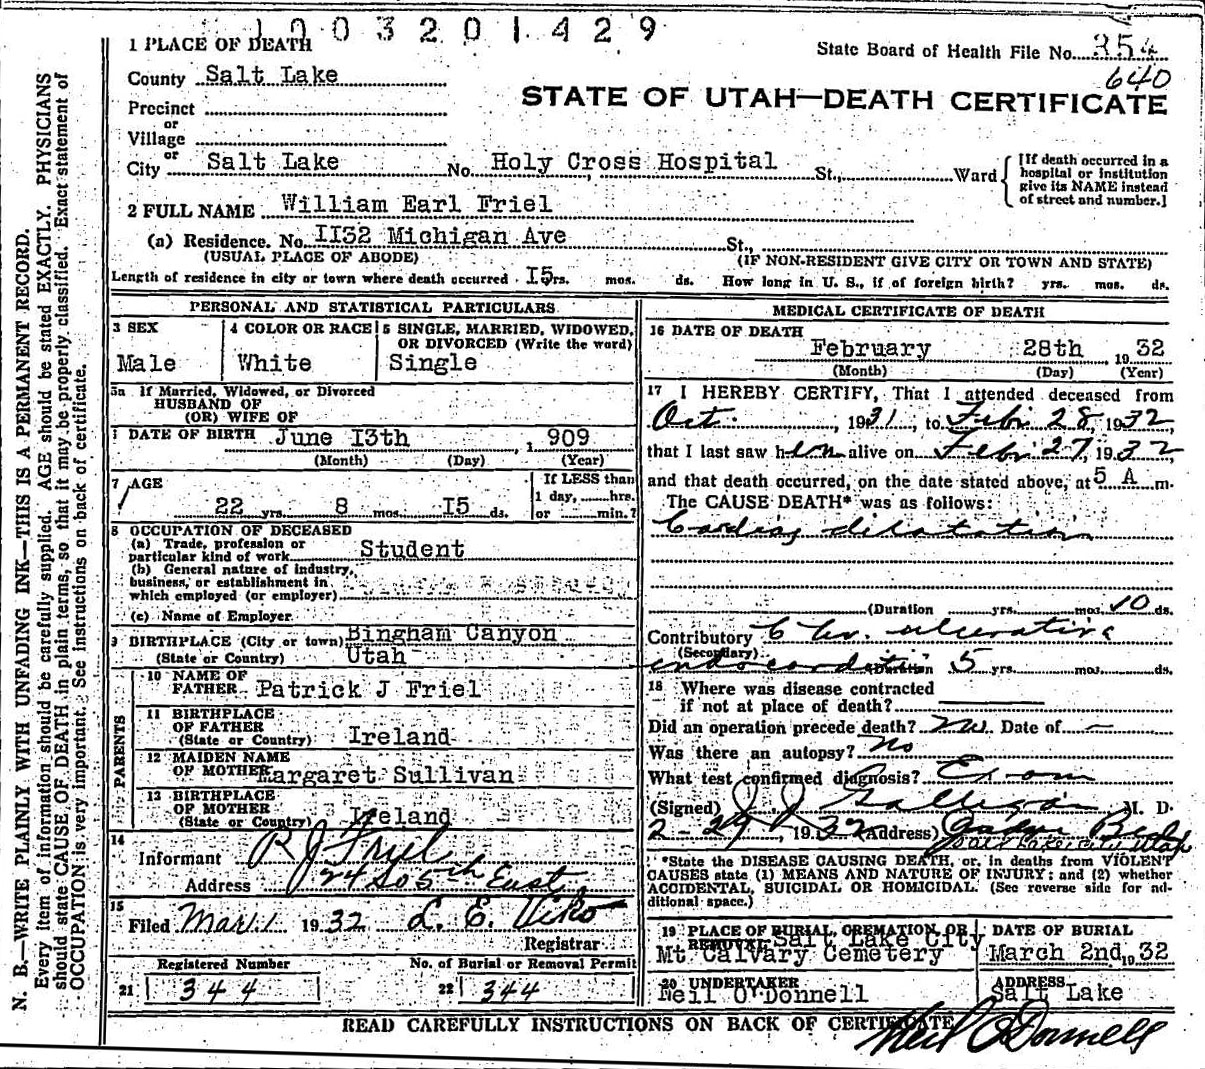 1003201429
1 PLACE OF DEATH
State Board of Health File No. 354
640
County Salt Lake
STATE OF UTAH—DEATH CERTIFICATE
Precinct
or
Village
or
City Salt Lake No. Holy Cross Hospital St., Ward
[If death occurred in a
hospital or institution
give its NAME instead
of street and number.]
2 FULL NAME William Earl Friel
(a) Residence. No. II32 Michigan Ave St.,
(USUAL PLACE OF ABODE) (IF NON-RESIDENT GIVE CITY OR TOWN AND STATE)
Length of residence in city or town where death occurred I5 yrs. mos. ds. How long in U. S., if of foreign birth? yrs. mos. ds.
PERSONAL AND STATISTICAL PARTICULARS
3 SEX
Male
4 COLOR OR RACE
White
5 SINGLE, MARRIED, WIDOWED,
OR DIVORCED (Write the word)
Single
5a If Married, Widowed, or Divorced
HUSBAND OF
(OR) WIFE OF
DATE OF BIRTH June I3th , 1 909
(Month) (Day) (Year)
7 AGE
22 yrs. 8 mos. I5 ds.
If LESS than
1 day, hrs.
or min.?
8 OCCUPATION OF DECEASED
(a) Trade, profession or
particular kind of work Student
(b) General nature of industry,
business, or establishment in
which employed (or employer)
(c) Name of Employer
9 BIRTHPLACE (City or town) Bingham Canyon
(State or Country) Utah
PARENTS
10 NAME OF
FATHER Patrick J Friel
11 BIRTHPLACE
OF FATHER
(State or Country) Ireland
12 MAIDEN NAME
OF MOTHER Margaret Sullivan
13 BIRTHPLACE
OF MOTHER
(State or Country) Ireland
14
Informant P J Friel
Address 24 So 5th East
15
Filed Mar 1 1932 L. E. Viko
Registrar
Registered Number
21 344
No. of Burial or Removal Permit
22 344
MEDICAL CERTIFICATE OF DEATH
16 DATE OF DEATH
February 28th , 19 32
(Month) (Day) (Year)
17 I HEREBY CERTIFY, That I attended deceased from
Oct. , 1931, to Feb. 28, 1932,
that I last saw him alive on Feb. 27, 1932,
and that death occurred, on the date stated above, at 5 A m.
The CAUSE DEATH* was as follows:
Cardiac dilatation
(Duration yrs. mos. 10 ds.
Contributory Chr. ulcerative
(Secondary)
endocarditis (Duration 5 yrs. mos. ds.
18 Where was disease contracted
if not at place of death?
Did an operation precede death? no. Date of —
Was there an autopsy? No
What test confirmed diagnosis? Exam
(Signed) J J Galligan M. D.
2-29, 1932 (Address)
Salt Lake City Utah
*State the DISEASE CAUSING DEATH, or, in deaths from VIOLENT
CAUSES state (1) MEANS AND NATURE OF INJURY; and (2) whether
ACCIDENTAL, SUICIDAL OR HOMICIDAL. (See reverse side for ad-
ditional space.)
19 PLACE OF BURIAL, CREMATION, OR
REMOVAL Salt Lake City
Mt Calvary Cemetery
DATE OF BURIAL
March 2nd, 19 32
20 UNDERTAKER
Neil O'Donnell
ADDRESS
Salt Lake
READ CAREFULLY INSTRUCTIONS ON BACK OF CERTIFICATE
Neil O'Donnell
N. B.—WRITE PLAINLY WITH UNFADING INK—THIS IS A PERMANENT RECORD.
Every item of information should be carefully supplied. AGE should be stated EXACTLY. PHYSICIANS
should state CAUSE OF DEATH in plain terms, so that it may be properly classified. Exact statement of
OCCUPATION is very important. See instructions on back of certificate.